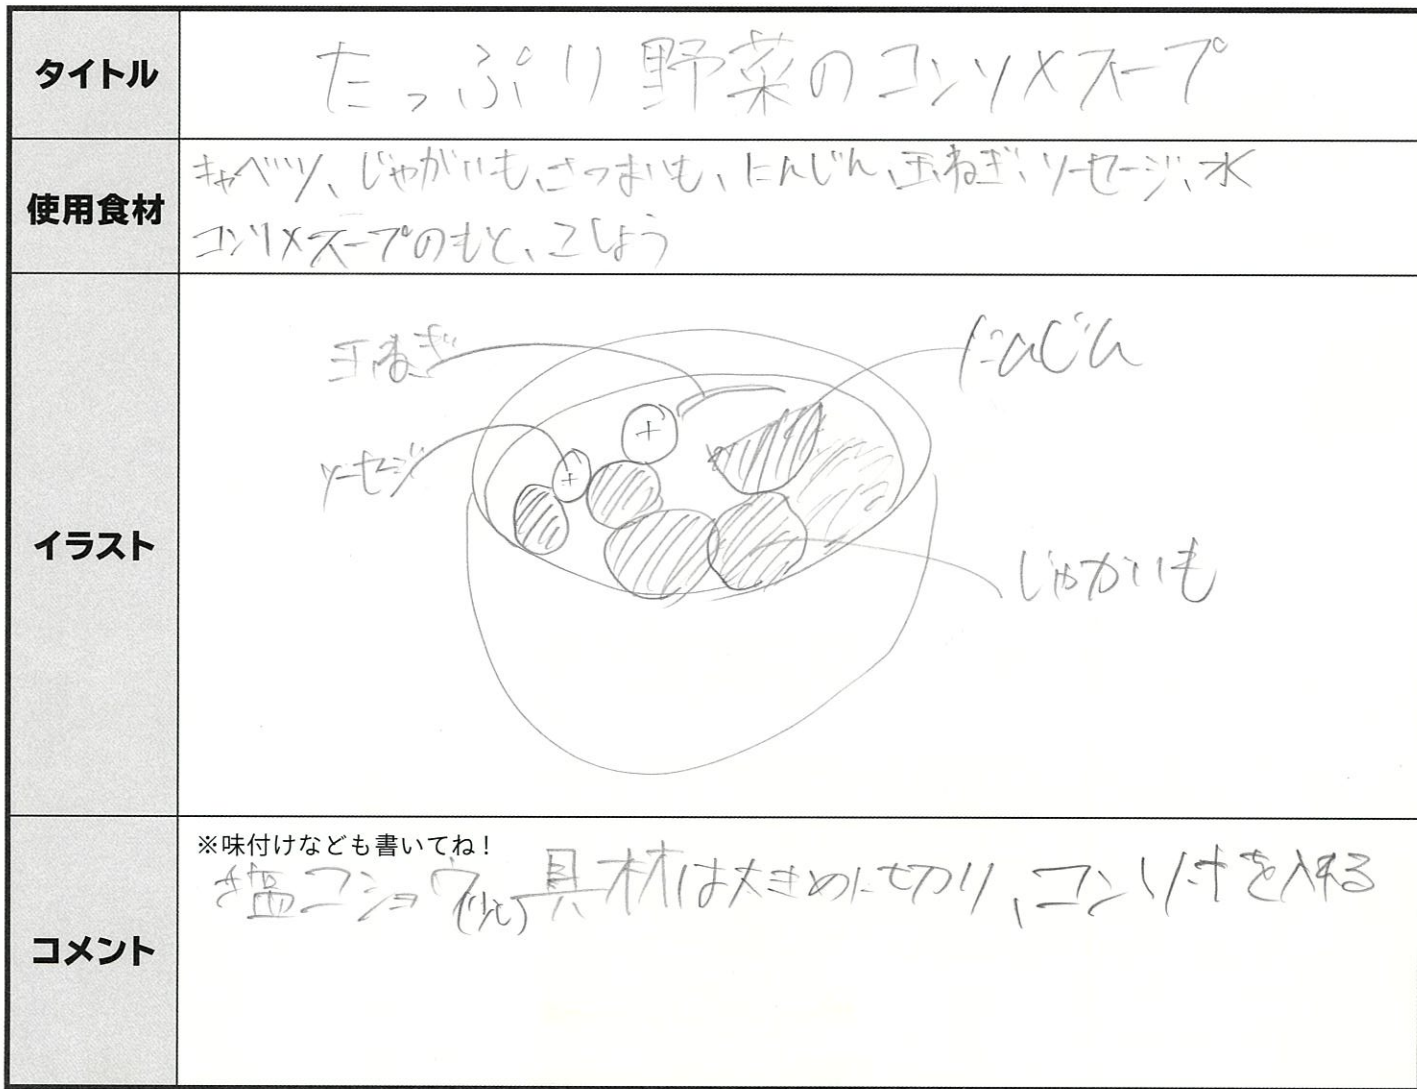 タイトル
たっぷり野菜のコンソメスープ
使用食材
キャベツ、じゃがいも、さつまいも、にんじん、玉ねぎ、ソーセージ、水
コンソメスープのもと、こしょう
イラスト
玉ねぎ
にんじん
ソーセージ
じゃがいも
コメント
※味付けなども書いてね!
塩コショウ(少し)具材は大きめに切り、コンソメを入れる